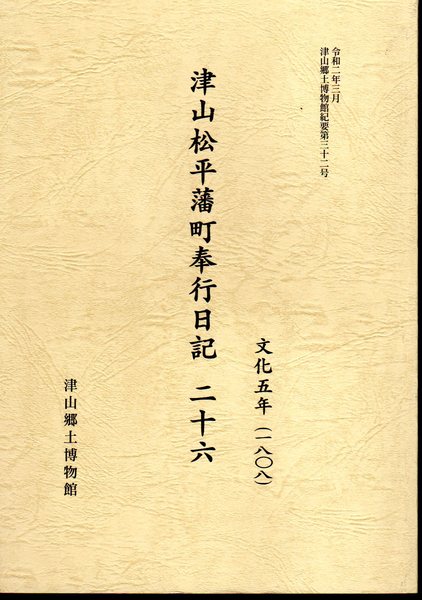 令和二年三月
津山郷土博物館紀要第三十二号
津山松平藩町奉行日記 二十六
文化五年(一八〇八)
津山郷土博物館